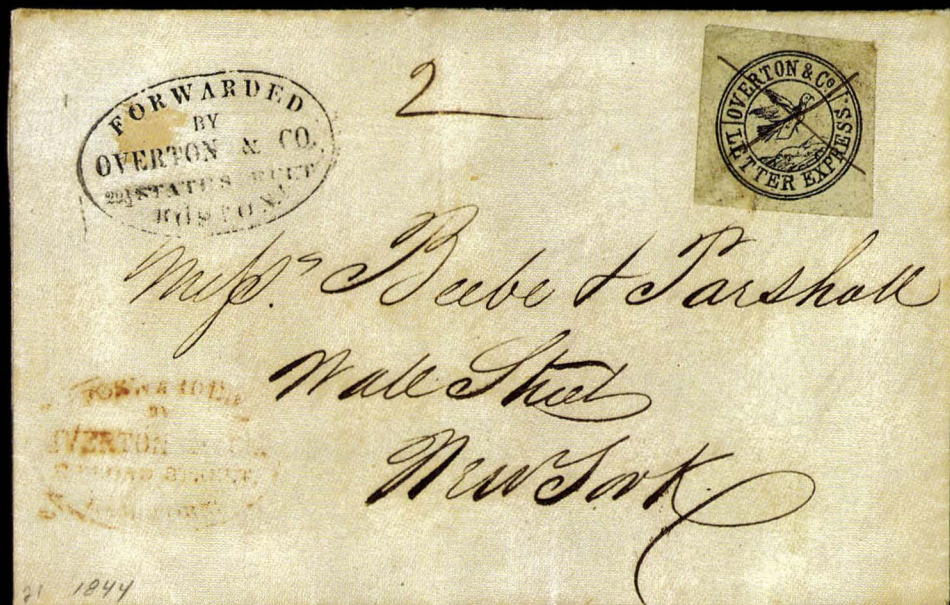 FORWARDED
BY
OVERTON & CO.
22½ STATE STREET
BOSTON.
2
OVERTON & Co
LETTER EXPRESS
Messrs. Beebe & Parshall
Wall Street
New York
BY
OVERTON
21 1844